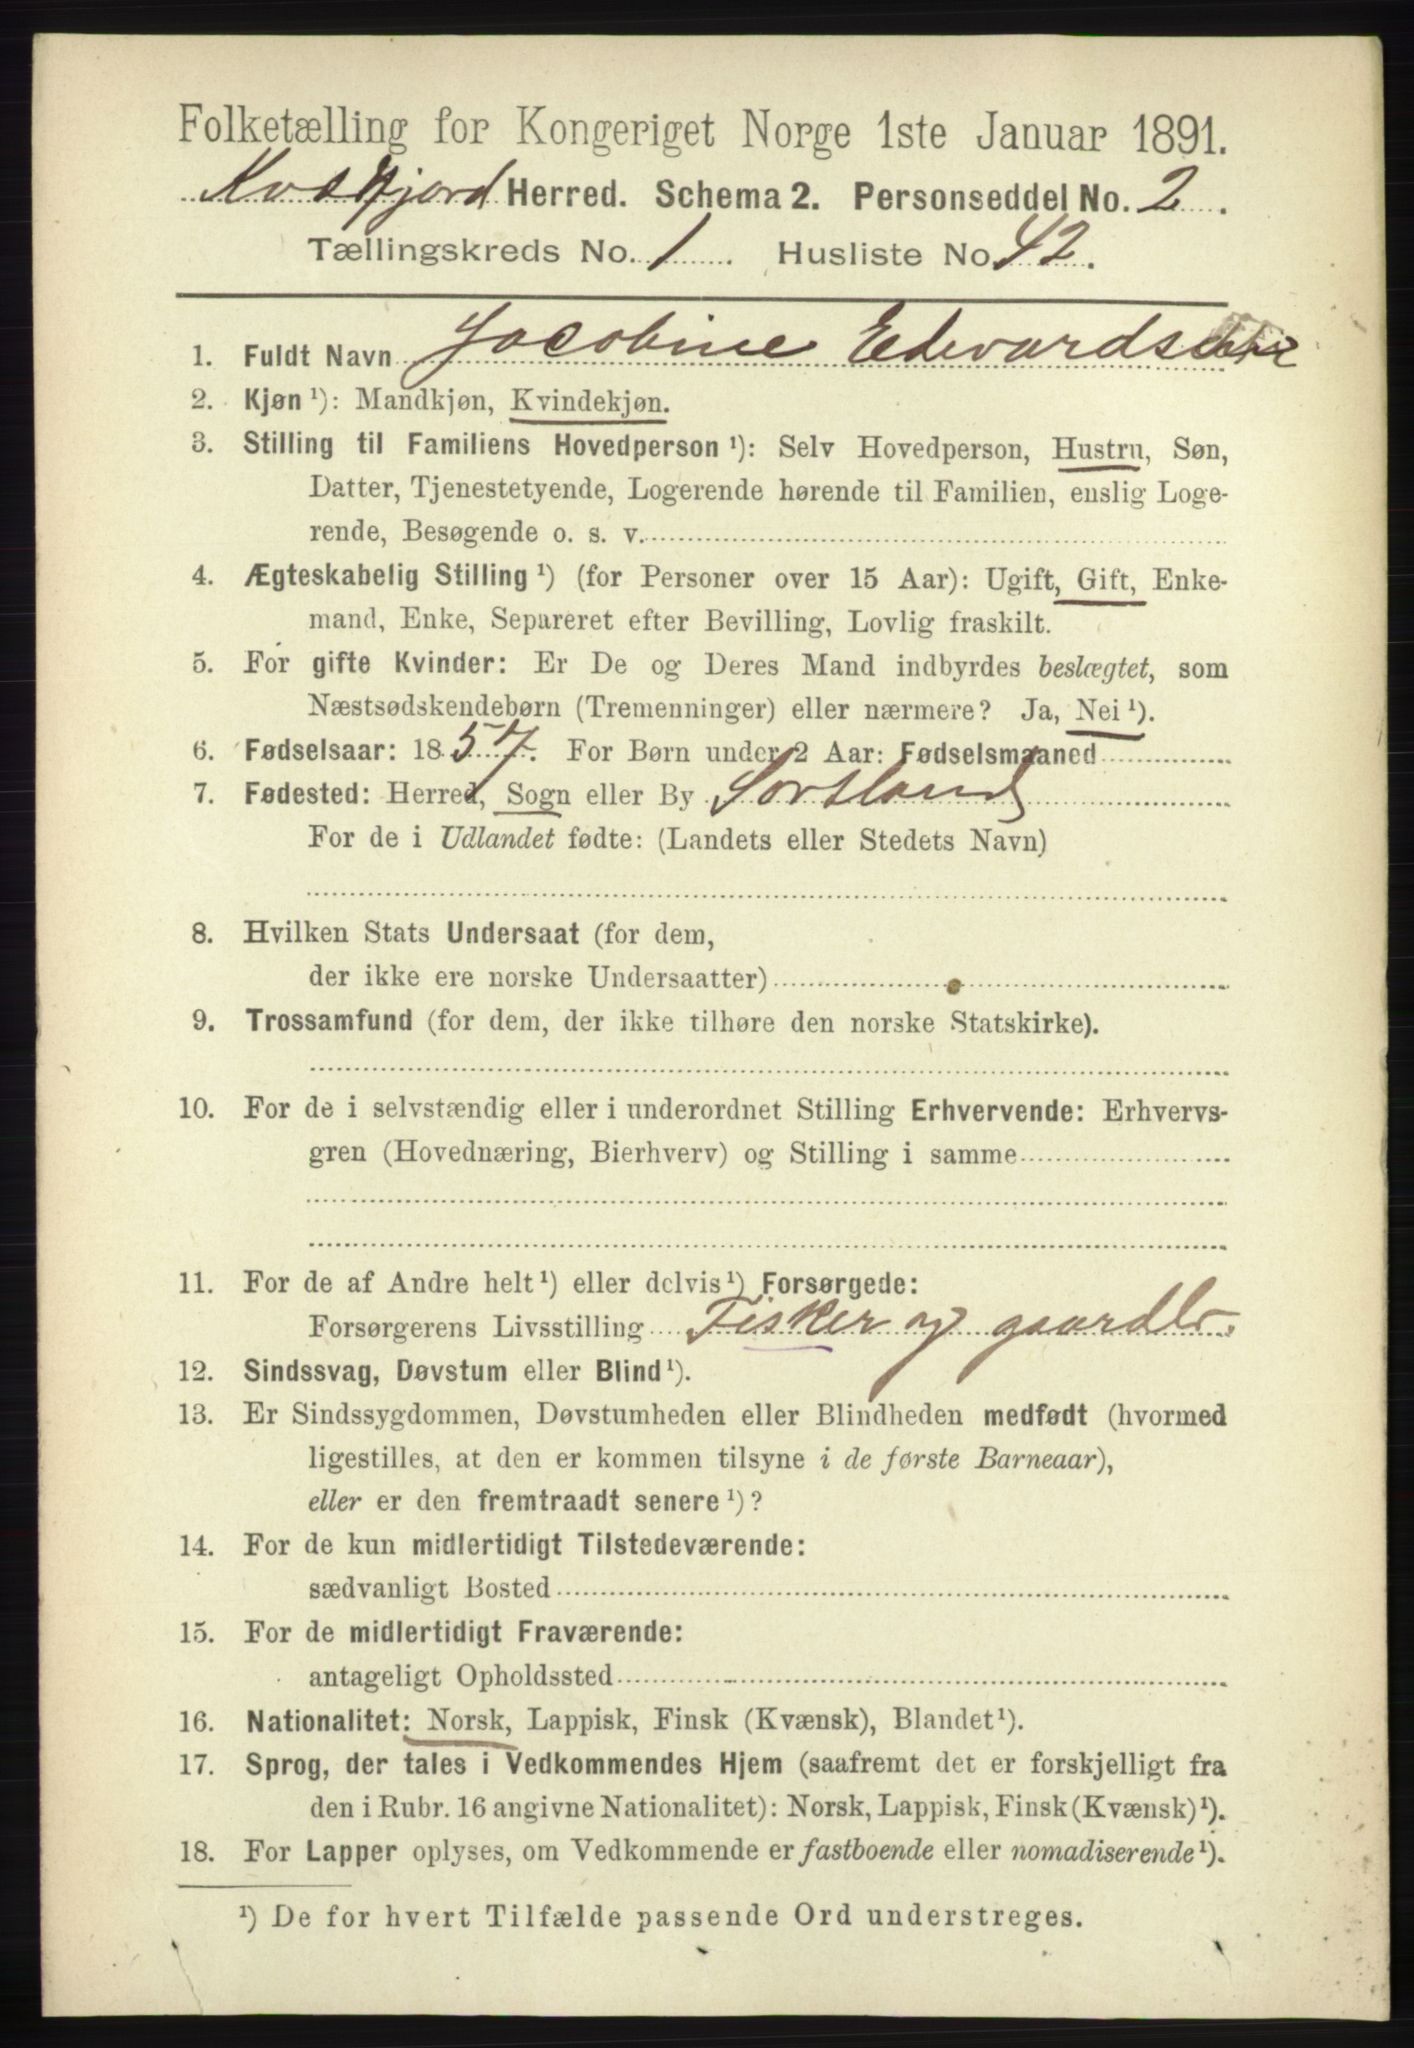 Folketælling for Kongeriget Norge 1ste Januar 1891.
Kvæfjord Herred. Schema 2. Personseddel No. 2.
Tællingskreds No. 1. Husliste No. 42.
1. Fuldt Navn Jacobine Edevardsdatter
2. Kjøn ¹): Mandkjøn, Kvindekjøn.
3. Stilling til Familiens Hovedperson ¹): Selv Hovedperson, Hustru, Søn,
Datter, Tjenestetyende, Logerende hørende til Familien, enslig Loge-
rende, Besøgende o. s. v.
4. Ægteskabelig Stilling ¹) (for Personer over 15 Aar): Ugift, Gift, Enke-
mand, Enke, Separeret efter Bevilling, Lovlig fraskilt.
5. For gifte Kvinder: Er De og Deres Mand indbyrdes beslægtet, som
Næstsødskendebørn (Tremenninger) eller nærmere? Ja, Nei ¹).
6. Fødselsaar: 1857. For Børn under 2 Aar: Fødselsmaaned
7. Fødested: Herred, Sogn eller By Sortland
For de i Udlandet fødte: (Landets eller Stedets Navn)
8. Hvilken Stats Undersaat (for dem,
der ikke ere norske Undersaatter)
9. Trossamfund (for dem, der ikke tilhøre den norske Statskirke).
10. For de i selvstændig eller i underordnet Stilling Erhvervende: Erhvervs-
gren (Hovednæring, Bierhverv) og Stilling i samme
11. For de af Andre helt ¹) eller delvis ¹) Forsørgede:
Forsørgerens Livsstilling Fisker og gaardbr.
12. Sindssvag, Døvstum eller Blind ¹).
13. Er Sindssygdommen, Døvstumheden eller Blindheden medfødt (hvormed
ligestilles, at den er kommen tilsyne i de første Barneaar),
eller er den fremtraadt senere ¹)?
14. For de kun midlertidigt Tilstedeværende:
sædvanligt Bosted
15. For de midlertidigt Fraværende:
antageligt Opholdssted
16. Nationalitet: Norsk, Lappisk, Finsk (Kvænsk), Blandet ¹).
17. Sprog, der tales i Vedkommendes Hjem (saafremt det er forskjelligt fra
den i Rubr. 16 angivne Nationalitet): Norsk, Lappisk, Finsk (Kvænsk) ¹).
18. For Lapper oplyses, om Vedkommende er fastboende eller nomadiserende ¹).
¹) De for hvert Tilfælde passende Ord understreges.